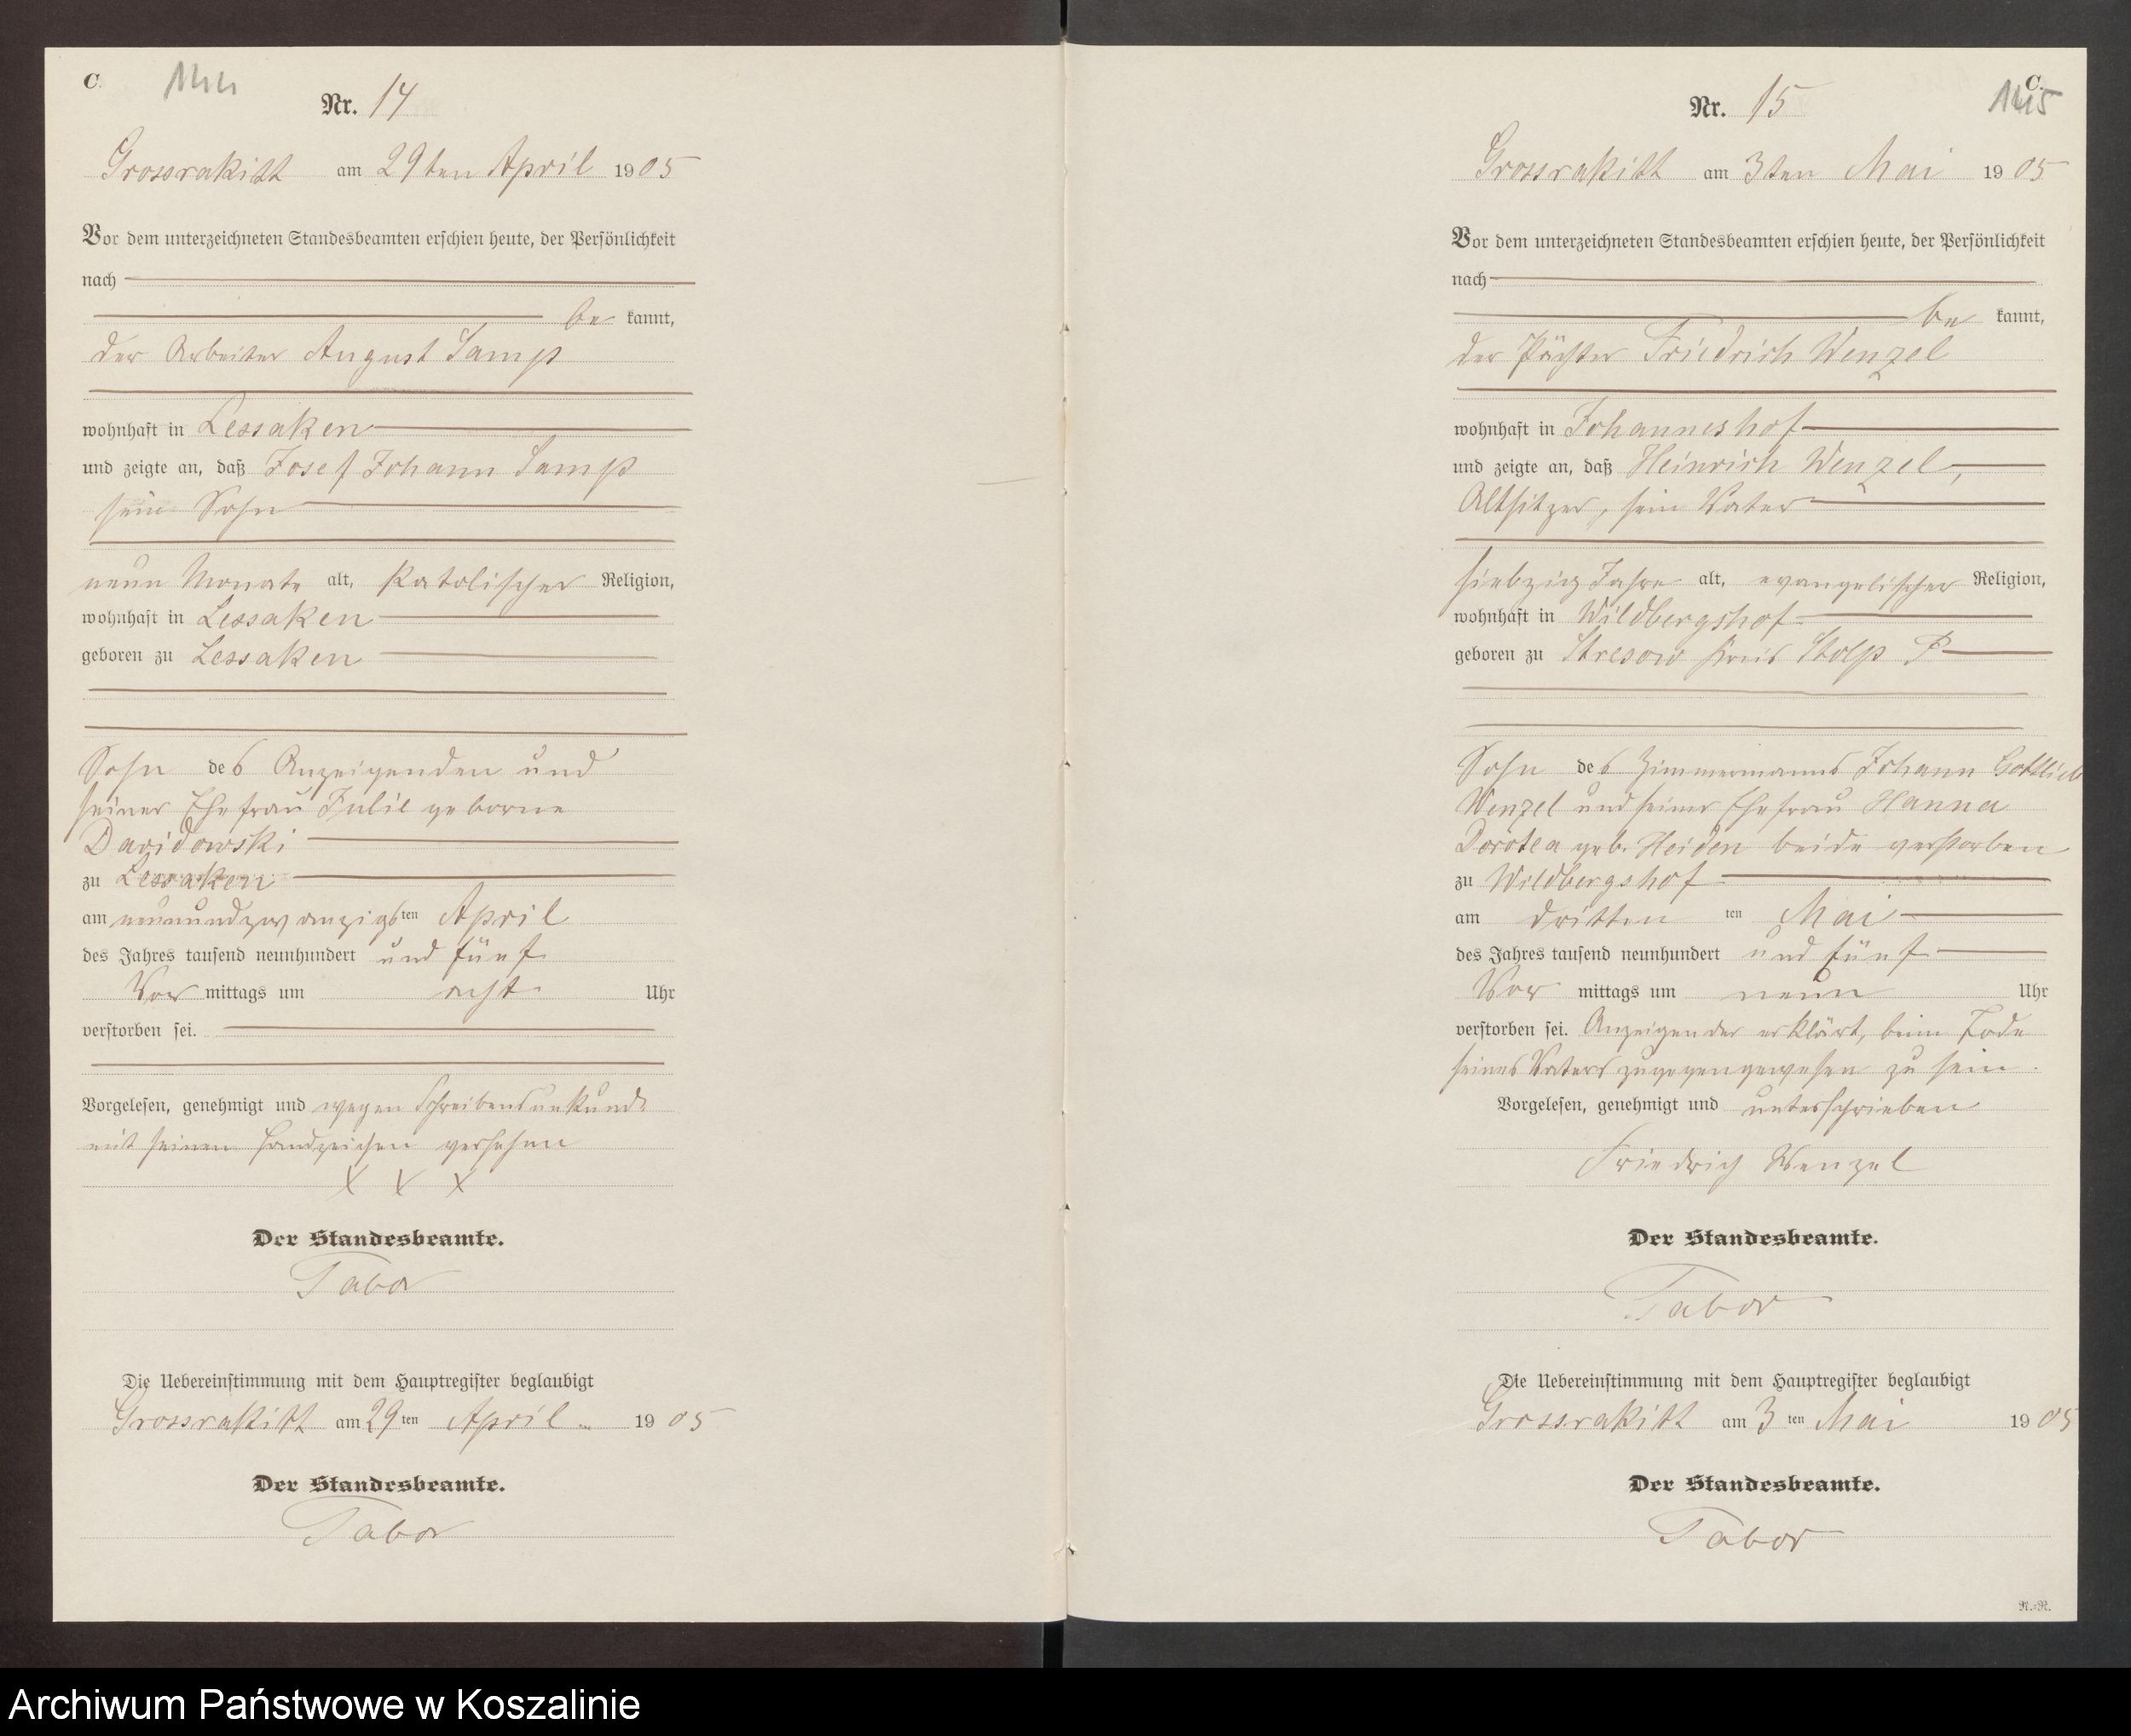 C.
144
Nr. 14
Grossrakitt am 29ten April 1905
Vor dem unterzeichneten Standesbeamten erschien heute, der Persönlichkeit
nach
be kannt,
der Arbeiter August Samp
wohnhaft in Lessaken
und zeigte an, daß Josef Johann Samp
sein Sohn
neun Monate alt, katolischer Religion,
wohnhaft in Lessaken
geboren zu Lessaken
Sohn des Anzeigenden und
seiner Ehefrau Julie geborne
Davidowski
zu Lessaken
am neunundzwanzigsten April
des Jahres tausend neunhundert und fünf
Vor mittags um acht Uhr
verstorben sei.
Vorgelesen, genehmigt und wegen Schreibensunkunde
mit seinem Handzeichen versehen
X X X
Der Standesbeamte.
Tabor
Die Uebereinstimmung mit dem Hauptregister beglaubigt
Grossrakitt am 29ten April 1905
Der Standesbeamte.
Tabor
C.
145
Nr. 15
Grossrakitt am 3ten Mai 1905
Vor dem unterzeichneten Standesbeamten erschien heute, der Persönlichkeit
nach
be kannt,
der Pächter Friedrich Wenzel
wohnhaft in Johanneshof
und zeigte an, daß Heinrich Wenzel,
Altsitzer, sein Vater
siebzig Jahre alt, evangelischer Religion,
wohnhaft in Wildbergshof
geboren zu Stresow Kreis Stolp P
Sohn des Zimmermanns Johann Gottlieb
Wenzel und seiner Ehefrau Hanna
Dorotea geb. Heiden beide verstorben
zu Wildbergshof
am dritten ten Mai
des Jahres tausend neunhundert und fünf
Vor mittags um neun Uhr
verstorben sei. Anzeigender erklärt, beim Tode
seines Vaters zugegengewesen zu sein.
Vorgelesen, genehmigt und unterschrieben
Friedrich Wenzel
Der Standesbeamte.
Tabor
Die Uebereinstimmung mit dem Hauptregister beglaubigt
Grossrakitt am 3ten Mai 1905
Der Standesbeamte.
Tabor
N.-R.
Archiwum Państwowe w Koszalinie